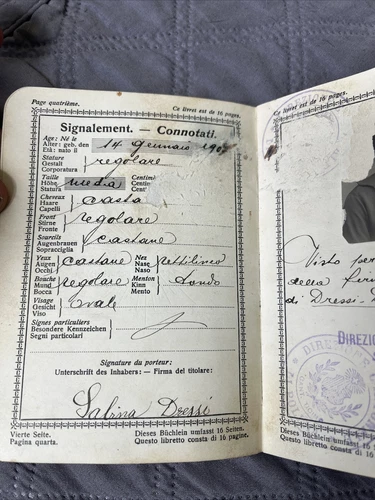 Page quatrième.
Ce livret est de 16 pages.
Signalement. — Connotati.
Age: Né le
Alter: geb. den
Età: nato il
14 gennaio
Stature
Gestalt
Corporatura
regolare
Taille
Höhe
Statura
media
Centim
Centi
Cent
Cheveux
Haare
Capelli
Front
Stirne
Fronte
regolare
Sourcils
Augenbrauen
Sopracciglia
castane
Yeux
Augen
Occhi
castane
Nez
Nase
Naso
rettilineo
Bouche
Mund
Bocca
regolare
Menton
Kinn
Mento
tondo
Visage
Gesicht
Viso
ovale
Signes particuliers
Besondere Kennzeichen
Segni particolari
Signature du porteur:
Unterschrift des Inhabers: — Firma del titolare:
Sabina Dressi
Vierte Seite.
Dieses Büchlein umfasst 16 Seiten.
Pagina quarta.
Questo libretto consta di 16 pagine.
Ce
Visto per
della firm
di Dressi
DIREZIO
Dieses Bü
Questo libre